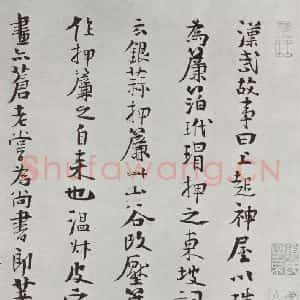 漢武故事曰上起神屋以珠
為簾箔玳瑁押之東坡詞
云銀蒜押簾山谷改壓
作押簾之自來也温
畫六蒼老嘗為尚書郎
Shufawang.CN